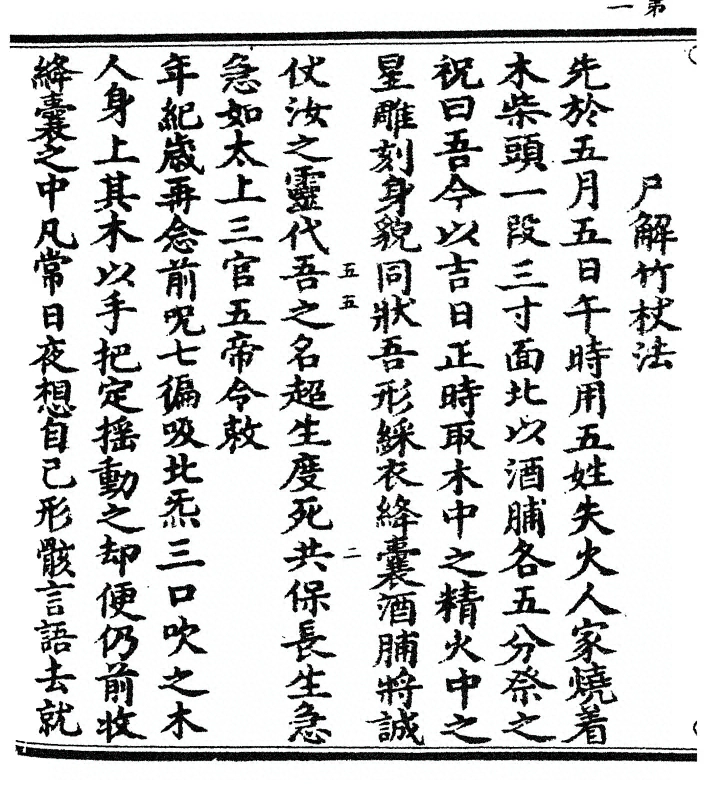 第一
尸解竹杖法
先於五月五日午時用五姓失火人家燒着
木柴頭一段三寸面北以酒脯各五分祭之
祝曰吾今以吉日正時取木中之精火中之
星雕刻身貌同狀吾形綵衣絳囊酒脯將誠
五五 二
仗汝之靈代吾之名超生度死共保長生急
急如太上三官五帝令敕
年紀歲再念前呪七徧吸北炁三口吹之木
人身上其木以手把定揺動之却便仍前收
絳囊之中凡常日夜想自己形骸言語去就